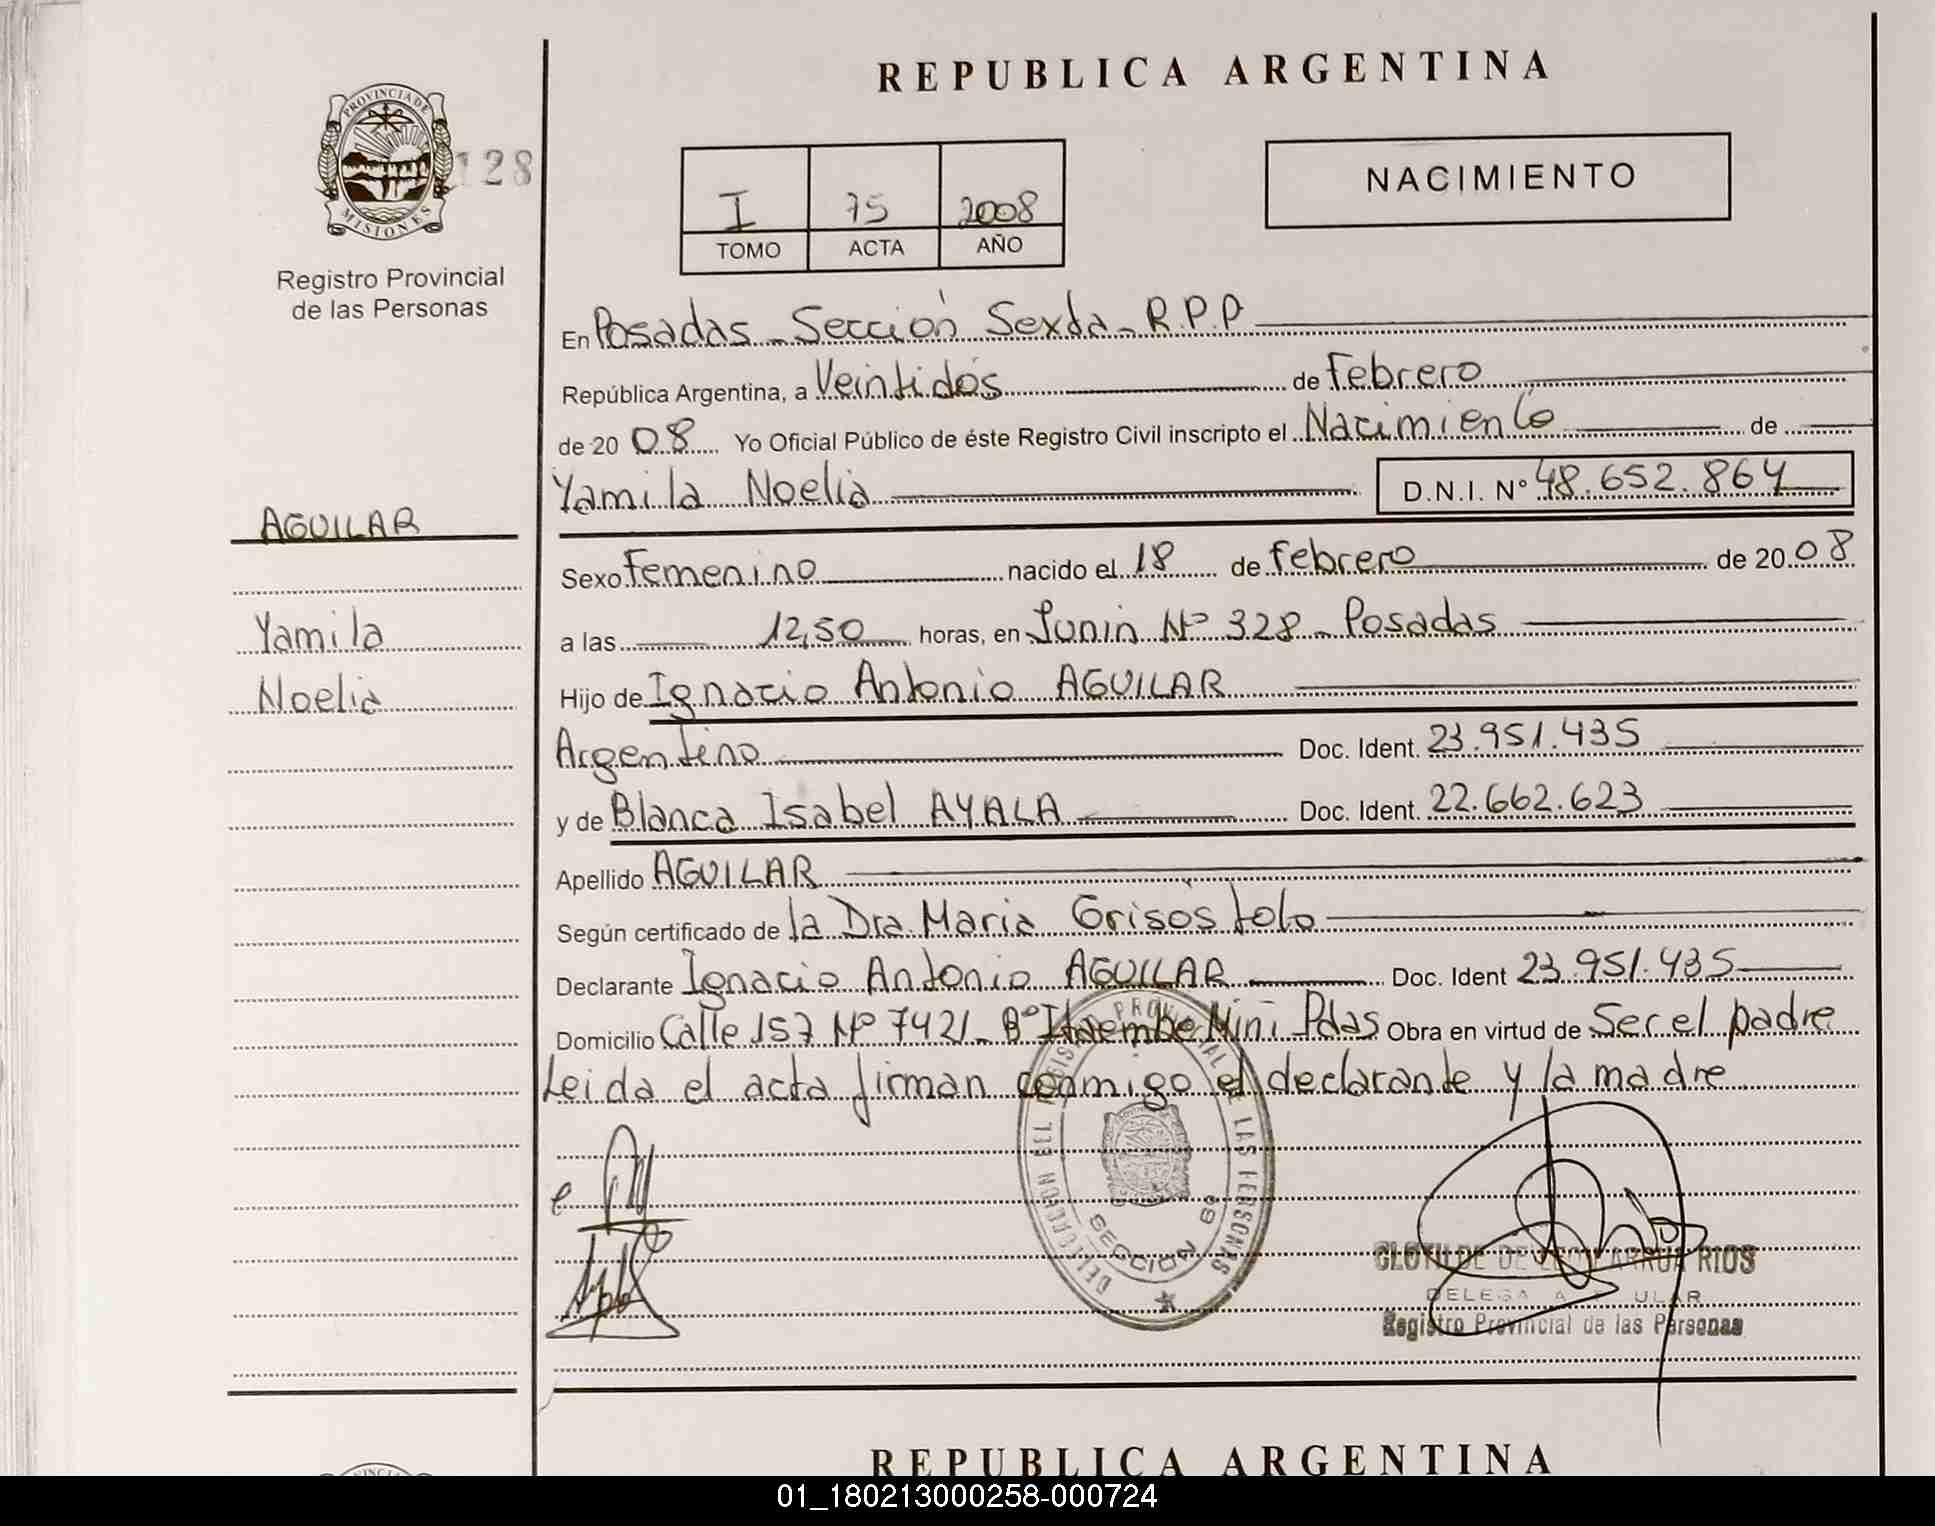 REPUBLICA ARGENTINA
PROVINCIA DE
MISIONES
128
Registro Provincial
de las Personas
I 75 2008
TOMO ACTA AÑO
NACIMIENTO
En Posadas - Sección Sexta - R.P.P
República Argentina, a Veintidós de Febrero
de 2008 Yo Oficial Público de éste Registro Civil inscripto el Nacimiento de
Yamila Noelia D.N.I. Nº 48.652.864
AGUILAR
Yamila
Noelia
Sexo Femenino nacido el 18 de Febrero de 2008
a las 12,50 horas, en Junin Nº 328 - Posadas
Hijo de Ignacio Antonio AGUILAR
Argentino Doc. Ident. 23.951.435
y de Blanca Isabel AYALA Doc. Ident. 22.662.623
Apellido AGUILAR
Según certificado de la Dra. Maria Grisos tolo
Declarante Ignacio Antonio AGUILAR Doc. Ident 23.951.435
Domicilio Calle 157 Nº 7421 - Bº Itaembe Mini Pdas Obra en virtud de Ser el padre
Leida el acta firman conmigo el declarante y la madre
REGISTRO PROVINCIAL DE LAS PERSONAS
SECCION 6ª
CLOTILDE RIOS
Registro Provincial de las Personas
REPUBLICA ARGENTINA
01_180213000258-000724